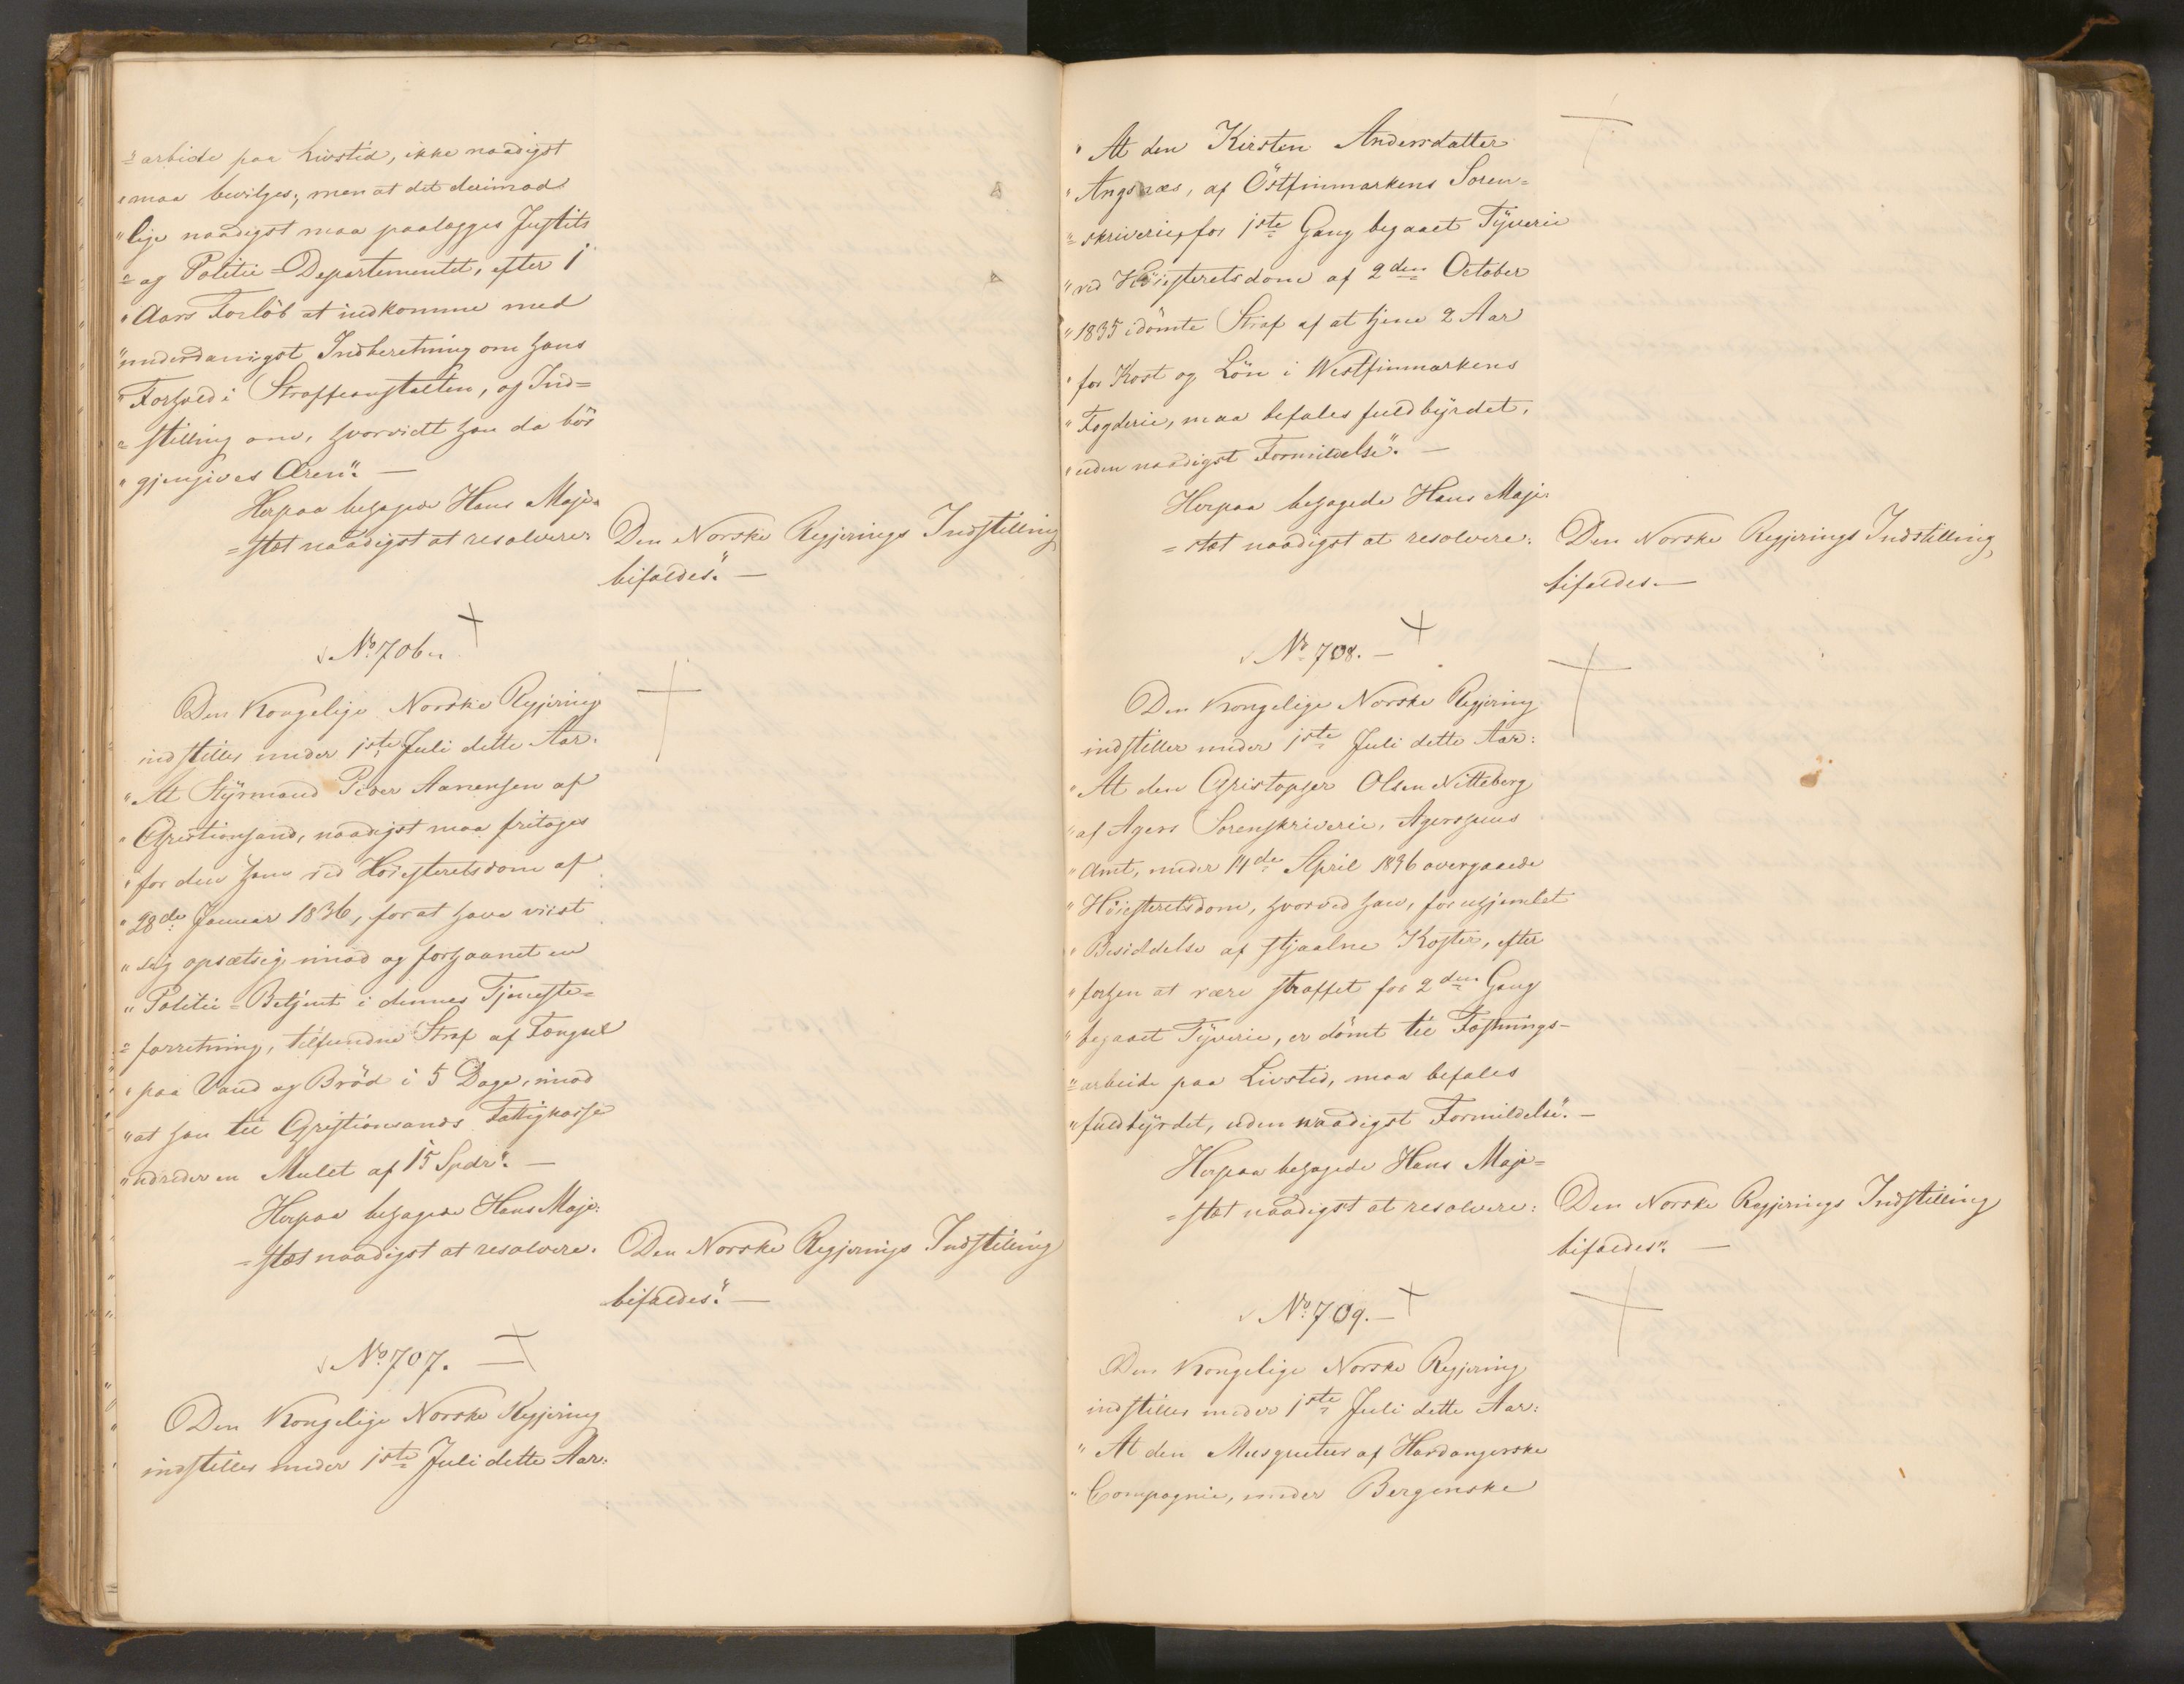 "arbeide paa Livstid, ikke naadigst
"maa bevilges; men at det derimod
"lige naadigst maa paalægges Justits
"og Politie=Departementet, efter 1
"Aars Forløb at indkomme med
"underdanigst Indberetning om hans
"Forhold i Straffeanstalten, og Ind=
"stilling om, hvorvidt han da bör
"gjengives Æren". —
Herpaa behagede Hans Maje=
=stæt naadigst at resolvere: Den Norske Regjerings Indstilling
bifaldes". —
No. 706.
Den Kongelige Norske Regjering
indstiller under 1ste Juli dette Aar:
"At Styrmand Peder Aanensen af
"Christiansand, naadigst maa fritages
"for den ham ved Höiesteretsdom af
"28de Januar 1836, for at have viist
"sig opsætsig imod og forhaanet en
"Politie=Betjent i dennes Tjeneste=
"forretning, tilfundne Straf af Fængsel
"paa Vand og Bröd i 5 Dage, imod
"at han til Christiansands Fattigkasse
"udreder en Mulct af 15 Spdr". —
Herpaa behagede Hans Maje=
=stæt naadigst at resolvere: Den Norske Regjerings Indstilling
bifaldes". —
No. 707. —
Den Kongelige Norske Regjering
indstiller under 1ste Juli dette Aar:
"At den Kirsten Andersdatter
"Angsnæs, af Östfinmarkens Soren=
"skriverie, for 1ste Gang begaaet Tyverie
"ved Höiesteretsdom af 2den October
"1835 idömte Straf af at tjene 2 Aar
"for Kost og Lön i Westfinmarkens
"Fogderie, maa befales fuldbyrdet,
"uden naadigst Formildelse". —
Herpaa behagede Hans Maje=
=stæt naadigst at resolvere: Den Norske Regjerings Indstilling
bifaldes. —
No. 708. —
Den Kongelige Norske Regjering
indstiller under 1ste Juli dette Aar:
"At den Christopher Olsen Nitteberg
"af Agers Sorenskriverie, Agershuus
"Amt, under 14de April 1836 overgaaede
"Höiesteretsdom, hvorved han, for uhjemlet
"Besiddelse af stjaalne Koster, efter
"forhen at være straffet for 2den Gang
"begaaet Tyverie, er dömt til Fæstnings=
"arbeide paa Livstid, maa befales
"fuldbyrdet, uden naadigst Formildelse". —
Herpaa behagede Hans Maje=
=stæt naadigst at resolvere: Den Norske Regjerings Indstilling
bifaldes". —
No. 709. —
Den Kongelige Norske Regjering
indstiller under 1ste Juli dette Aar:
"At den Musqueteer af Hardangerske
"Compagnie, under Bergenske